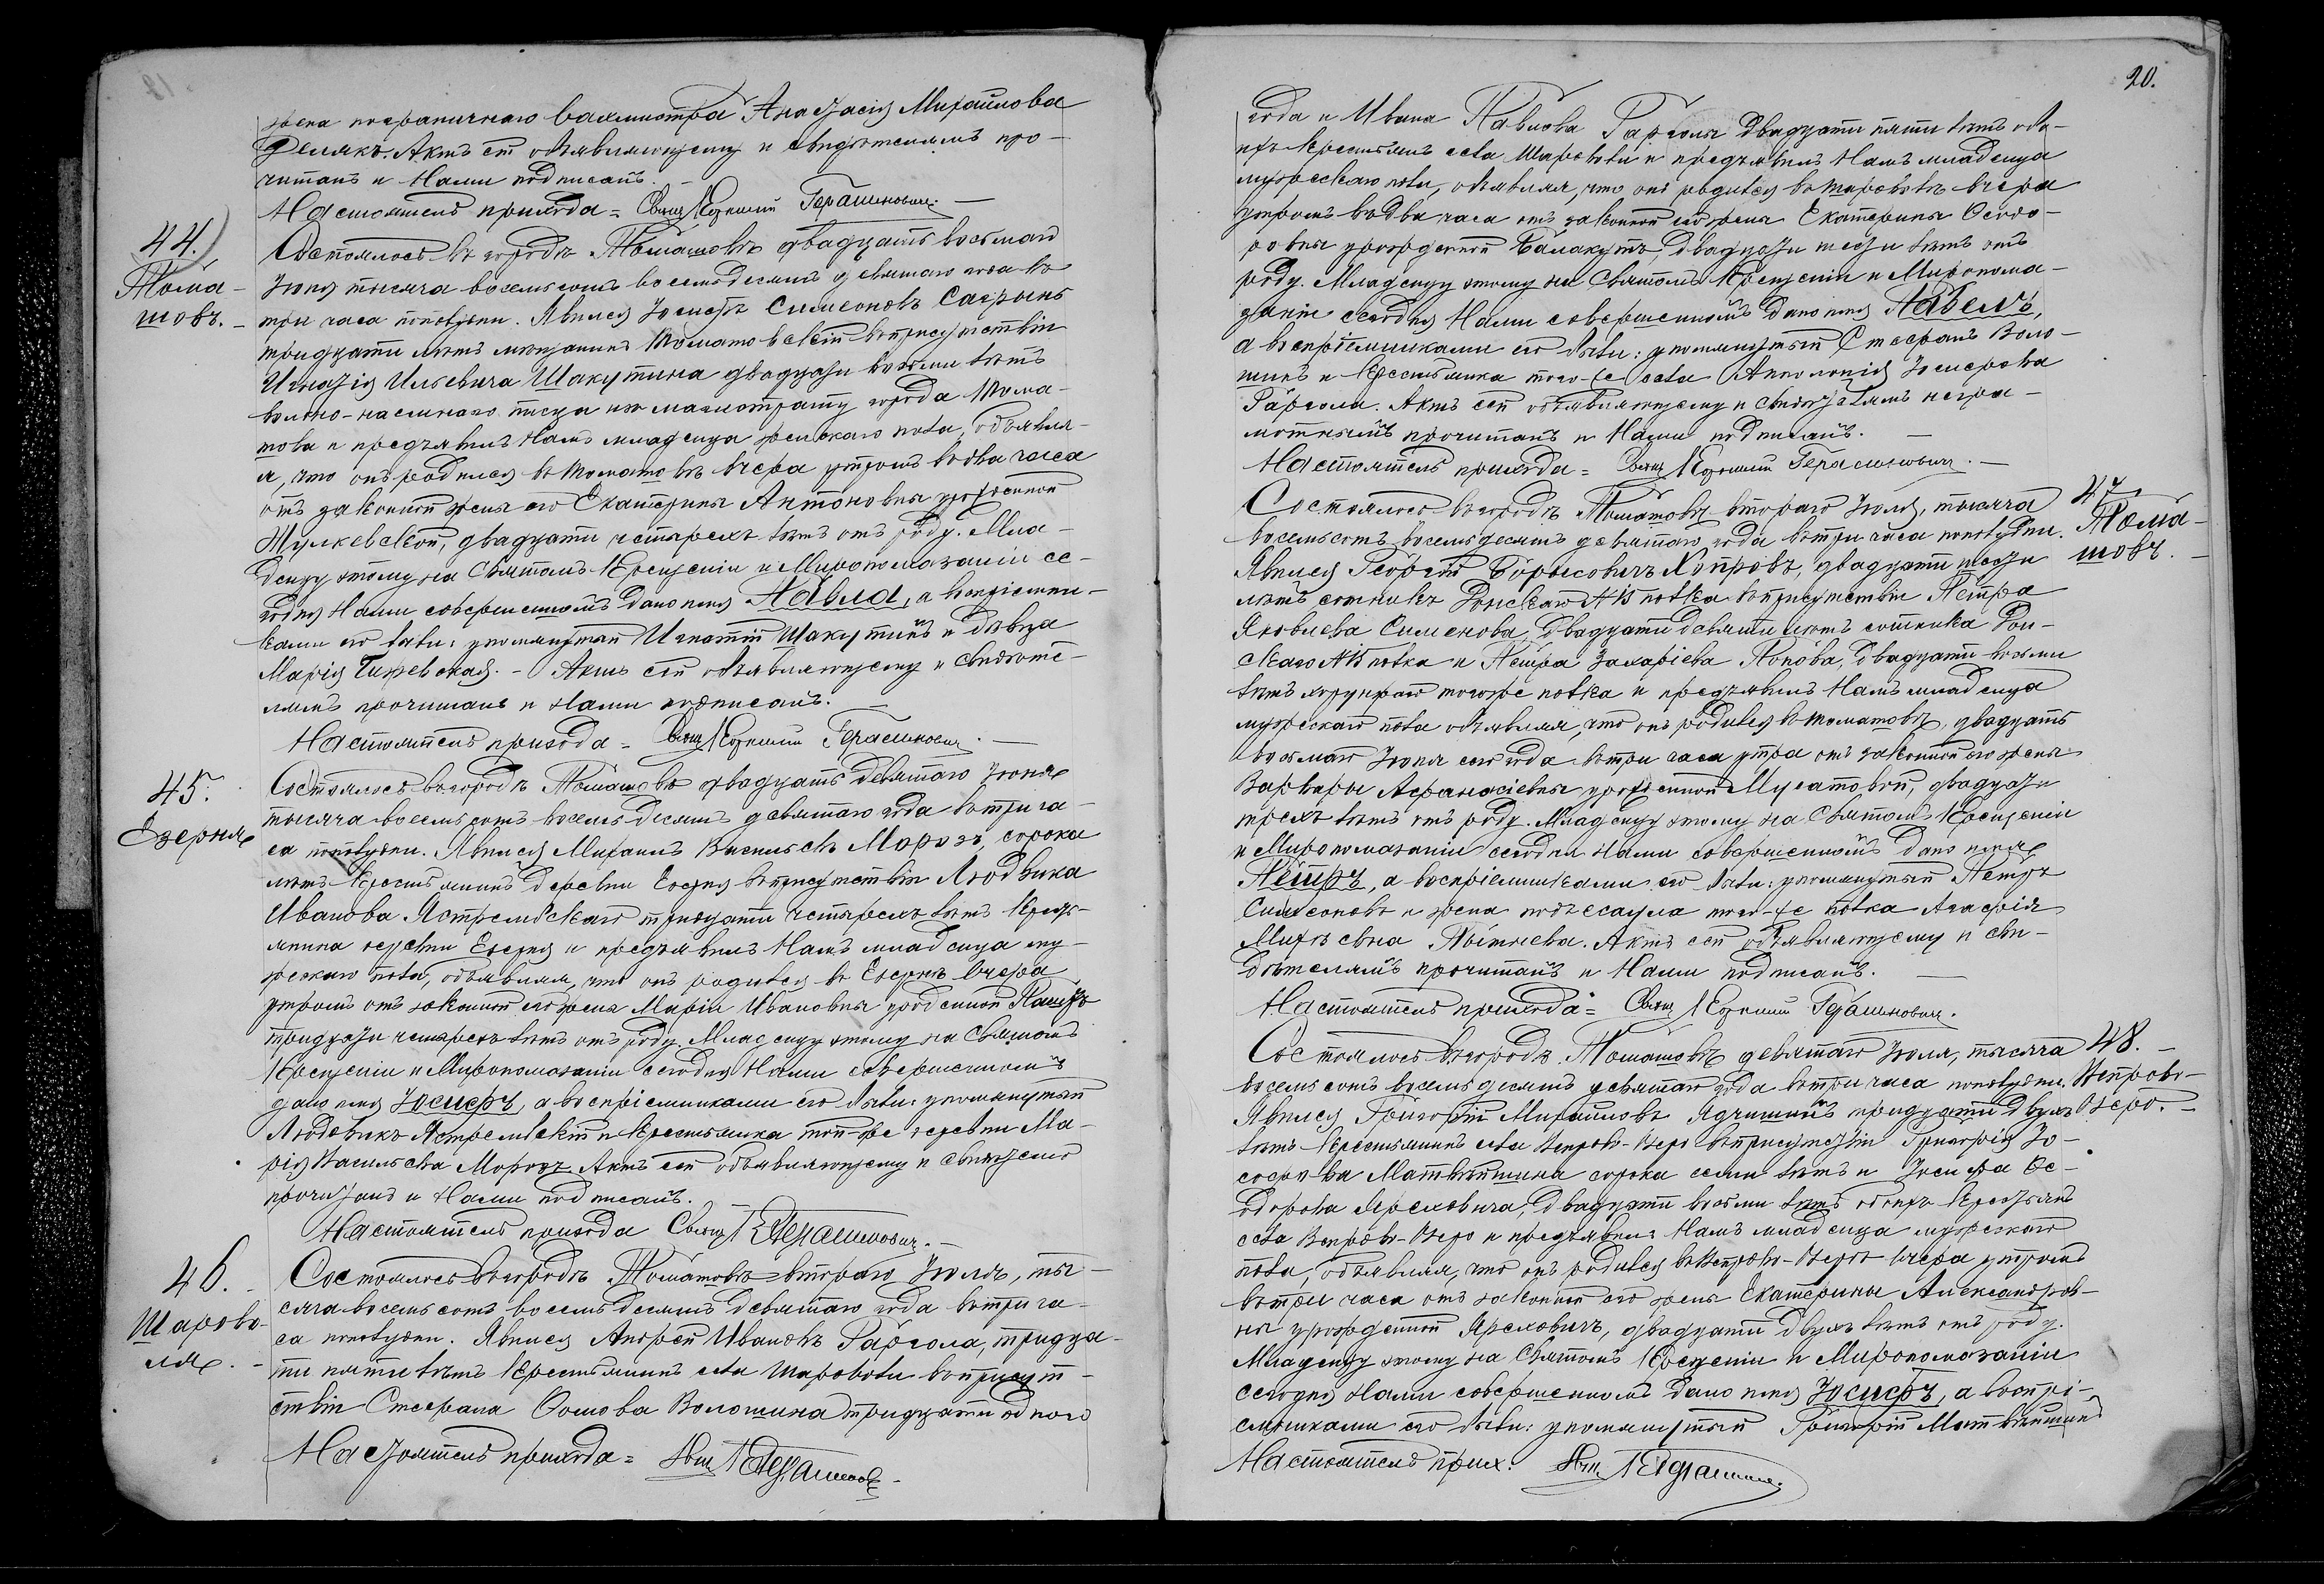 жена пограничнаго вахмистра Анастасія Михайлова
Акты сей объявляющему и свидѣтелямъ про-
читанъ и Нами подписанъ. -
Настоятель прихода = Свящ. Герасимовичъ. -
44.
Тома-
шовъ. -
Состоялось въ городѣ Томашовѣ двадцать восьмаго
Іюня тысяча восемьсотъ восемьдесятъ девятаго года въ
три часа пополудни. Явился Іосифъ Симеоновъ
тридцати лѣтъ мѣщанинъ Томашовскій въ присутствіи
Игнатія Ильевича Шакутина двадцати восьми лѣтъ
вольно-наемнаго писца изъ магистрату города Тома-
шова и предъявилъ Намъ младенца женскаго пола, объявля-
я, что онъ родился въ Томашовѣ вчера утромъ въ два часа
отъ законной жены его Екатерины Антоновны урожденной
Жулкевской, двадцати четырехъ лѣтъ отъ роду. Мла-
денцу этому на Святомъ Крещеніи и Миропомазаніи се-
годня Нами совершенномъ дано имя Павла, а воспріемни-
ками его были: упомянутый Игнатій Шакутинъ и дѣвица
Марія - Актъ сей объявляющему и свидѣте-
лямъ прочитанъ и Нами подписанъ. -
Настоятель прихода = Свящ. Герасимовичъ. -
45.
Езерня
Состоялось въ городѣ Томашовѣ двадцать девятаго Іюня
тысяча восемьсотъ восемьдесятъ девятаго года въ три ча-
са пополудни. Явился Михаилъ Васильевъ Морозъ, сорока
лѣтъ крестьянинъ деревни Езерня въ присутствіи Людвика
Иванова Ястремскаго тридцати четырехъ лѣтъ кресть-
янина деревни Езерня и предъявилъ Намъ младенца му-
жескаго пола, объявляя, что онъ родился въ Езернѣ вчера
утромъ отъ законной его жены Маріи Ивановны урожденной
тридцати четырехъ лѣтъ отъ роду. Младенцу этому на Святомъ
Крещеніи и Миропомазаніи сегодня Нами совершенномъ
дано имя Іосифъ, а воспріемниками его были: упомянутый
Людовикъ Ястремскій и крестьянка той-же деревни Ма-
рія Васильева Морозъ. Актъ сей объявляющему и свидѣтелю
прочитанъ и Нами подписанъ.
Настоятель прихода Свящ. Герасимовичъ. -
46. -
Шарово-
ля. -
Состоялось въ городѣ Томашовѣ втораго Іюля, ты-
сяча восемьсотъ восемьдесятъ девятаго года въ три ча-
са пополудни. Явился Андрей Ивановъ Гаргола, тридца-
ти пяти лѣтъ крестьянинъ села Шароволи въ присут-
ствіи Стефана Волошина тридцати одного
Настоятель прихода =
20.
года и Ивана Павлова Гарголы двадцати пяти лѣтъ обо-
ихъ крестьянъ села Шароволи и предъявилъ Намъ младенца
мужескаго пола, объявляя, что онъ родился въ Шароволѣ вчера
утромъ въ два часа отъ законной его жены Екатерины Оеодо-
ровны урожденной Балакутъ, двадцати шести лѣтъ отъ
роду. Младенцу этому на Святомъ Крещеніи и Миропома-
заніи сегодня Нами совершенномъ дано имя Павелъ,
а воспріемниками его были: упомянутый Стефанъ Воло-
шинъ и крестьянка того-же села Апполонія Іосифова
Гаргола. Актъ сей объявляющему и свидѣтелямъ негра-
мотнымъ прочитанъ и Нами подписанъ. -
Настоятель прихода = Свящ. Герасимовичъ. -
47.
Тома-
шовъ. -
Состоялось въ городѣ Томашовѣ втораго Іюля, тысяча
восемьсотъ восемьдесятъ девятаго года въ три часа пополудни.
Явился Георгій Борисовичъ Хопровъ, двадцати шести
лѣтъ сотникъ Донскаго №15 полка въ присутствіи Петра
Яковлева Симеонова, двадцати девяти лѣтъ сотника Дон-
скаго №15 полка и Петра Захаріева Попова, двадцати восьми
лѣтъ хорунжаго тогоже полка и предъявилъ Намъ младенца
мужескаго пола объявляя, что онъ родился въ Томашовѣ, двадцать
восьмаго Іюня сего года въ три часа утра отъ законной его жены
Варвары Афанасіевны урожденной Мусатовой, двадцати
трехъ лѣтъ отъ роду. Младенцу этому на Святомъ Крещеніи
и Миропомазаніи сегодня Нами совершенномъ дано имя
Петръ, а воспріемниками его были: упомянутый Петръ
Симеоновъ и жена подъесаула того-же полка Агафія
Актъ сей объявляющему и сви-
дѣтелямъ прочитанъ и Нами подписанъ. -
Настоятель прихода = Свящ. Герасимовичъ.
48. -
Вепрово-
Озеро. -
Состоялось въ городѣ Томашовѣ девятаго Іюля, тысяча
восемьсотъ восемьдесятъ девятаго года въ три часа пополудни.
Явился Григорій Михайловъ Ядчишинъ тридцати двухъ
лѣтъ крестьянинъ села Вепрово-Озеро въ присутствіи Григорія Іо-
сифова Матвѣйшина сорока семи лѣтъ и Іосифа Ѳе-
одорова Ярсховича, двадцати восьми лѣтъ обоихъ крестьянъ
села Вепрово-Озеро и предъявилъ Намъ младенца мужескаго
пола, объявляя, что онъ родился въ Вепрово-Озерѣ вчера утромъ
въ три часа отъ законной его жены Екатерины Александров-
ны урожденной Ярсховичъ, двадцати двухъ лѣтъ отъ роду.
Младенцу этому на Святомъ Крещеніи и Миропомазаніи
сегодня Нами совершенномъ дано имя Іосифъ, а воспрі-
емниками его были: упомянутый Григорій Матвѣйшинъ
Настоятель прих.